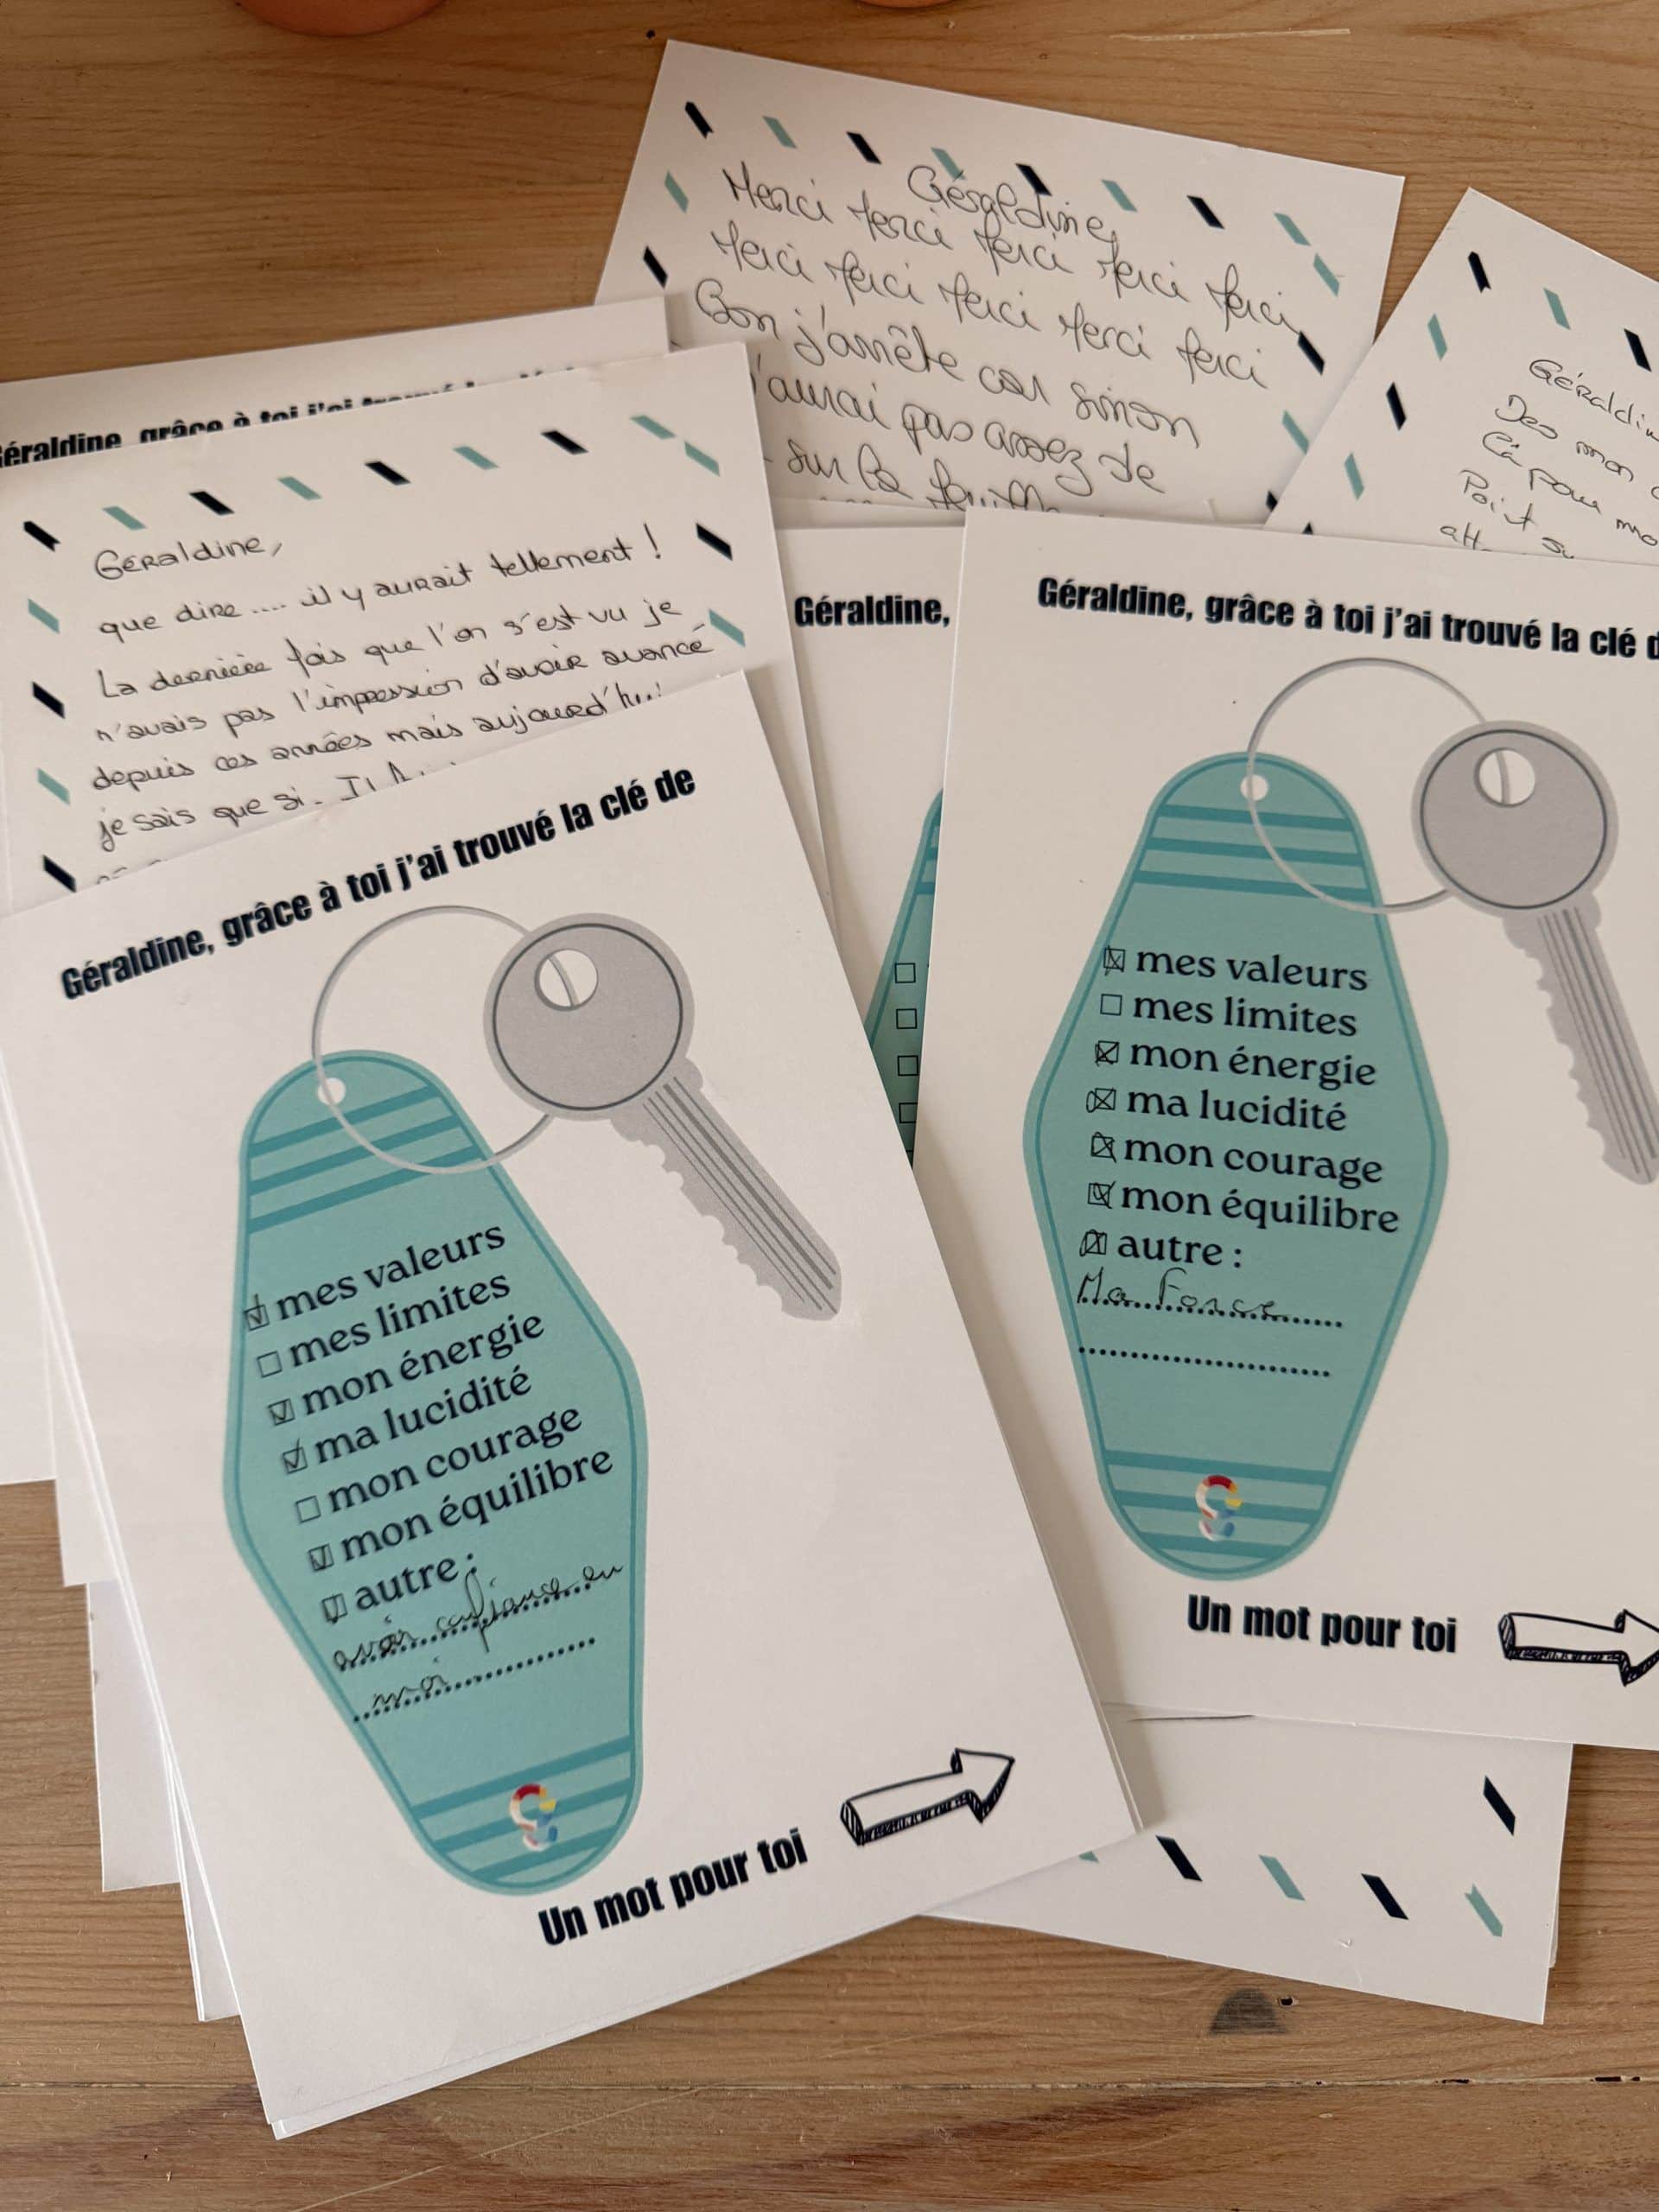 Géraldine,
Merci Merci Merci Merci Merci,
Merci Merci Merci Merci Merci
Bon j'arrête car sinon
j'aurai pas assez de
sur la feuille
Géraldine
Dès mon
Ca pour mo
Point
att
Géraldine, grâce à toi j'ai trouvé la clé
Géraldine,
que dire .... il y aurait tellement !
La dernière fois que l'on s'est vu je
n'avais pas l'impression d'avoir avancé
depuis ces années mais aujourd'hui
je sais que si.
Géraldine, grâce à toi j'ai trouvé la clé de
☑ mes valeurs
☐ mes limites
☑ mon énergie
☑ ma lucidité
☐ mon courage
☑ mon équilibre
☑ autre :
avoir confiance en
moi
Un mot pour toi
Géraldine,
Géraldine, grâce à toi j'ai trouvé la clé d
☒ mes valeurs
☐ mes limites
☒ mon énergie
☒ ma lucidité
☒ mon courage
☒ mon équilibre
☒ autre :
Ma Force
Un mot pour toi